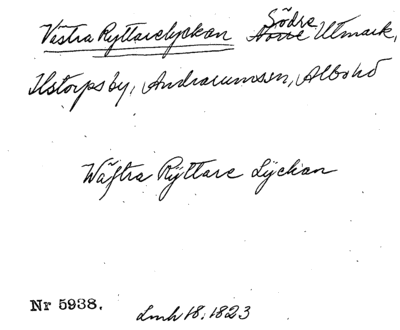 Västra Ryttarelyckan Södra Utmark,
Ilstorps by, Andrarums sn, Albo hd
Wäſtra Rÿttare Lÿckan
Nr 5938. Lmh 18: 1823